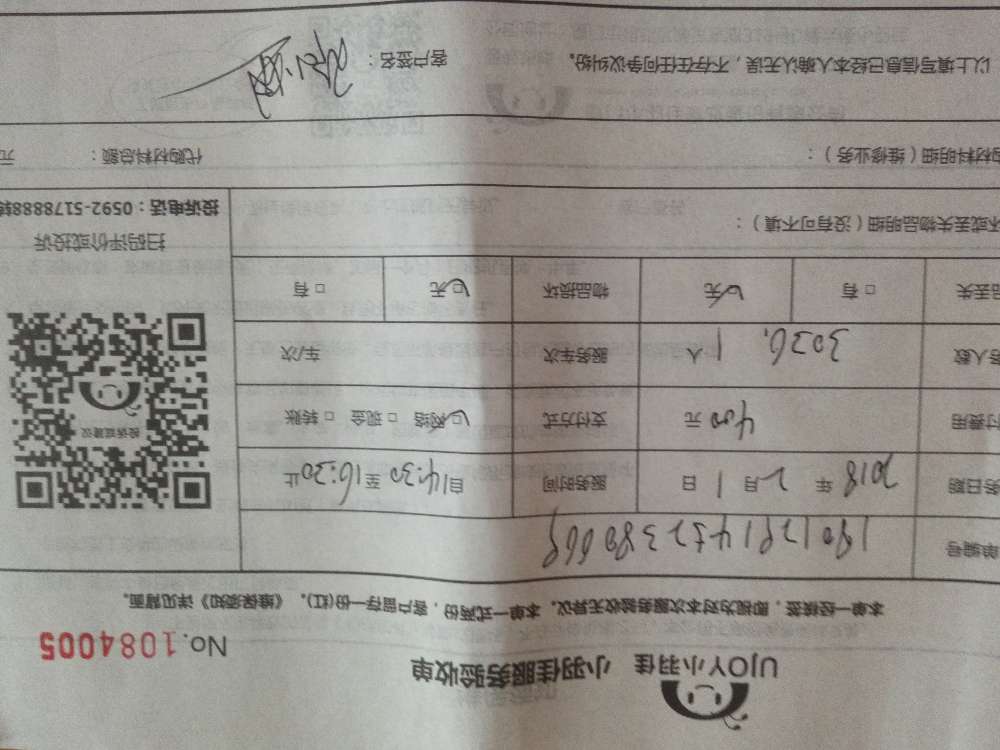 UJOY小羽佳 小羽佳服务验收单
No.1084005
本单一经接签，即视为对本次服务验收无异议。本单一式两份，客户留存一份(红)。《维保须知》详见背面。
单编号
务日期 2018 年 2 月 1 日 服务时间 自14:30至16:30止
付费用 400 元 支付方式 ☑网络 □现金 □转账
务人数 1 人 服务车次 车/次
品丢失 □有 ☑无 物品损坏 ☑无 □有
投诉或建议
扫码评价或投诉
投诉电话：0592-5178888转
坏或丢失物品明细（没有可不填）：
购材料明细（维修业务）： 代购材料总额： 元
以上填写信息已经本人确认无误，不存在任何争议纠纷。 客户签名：